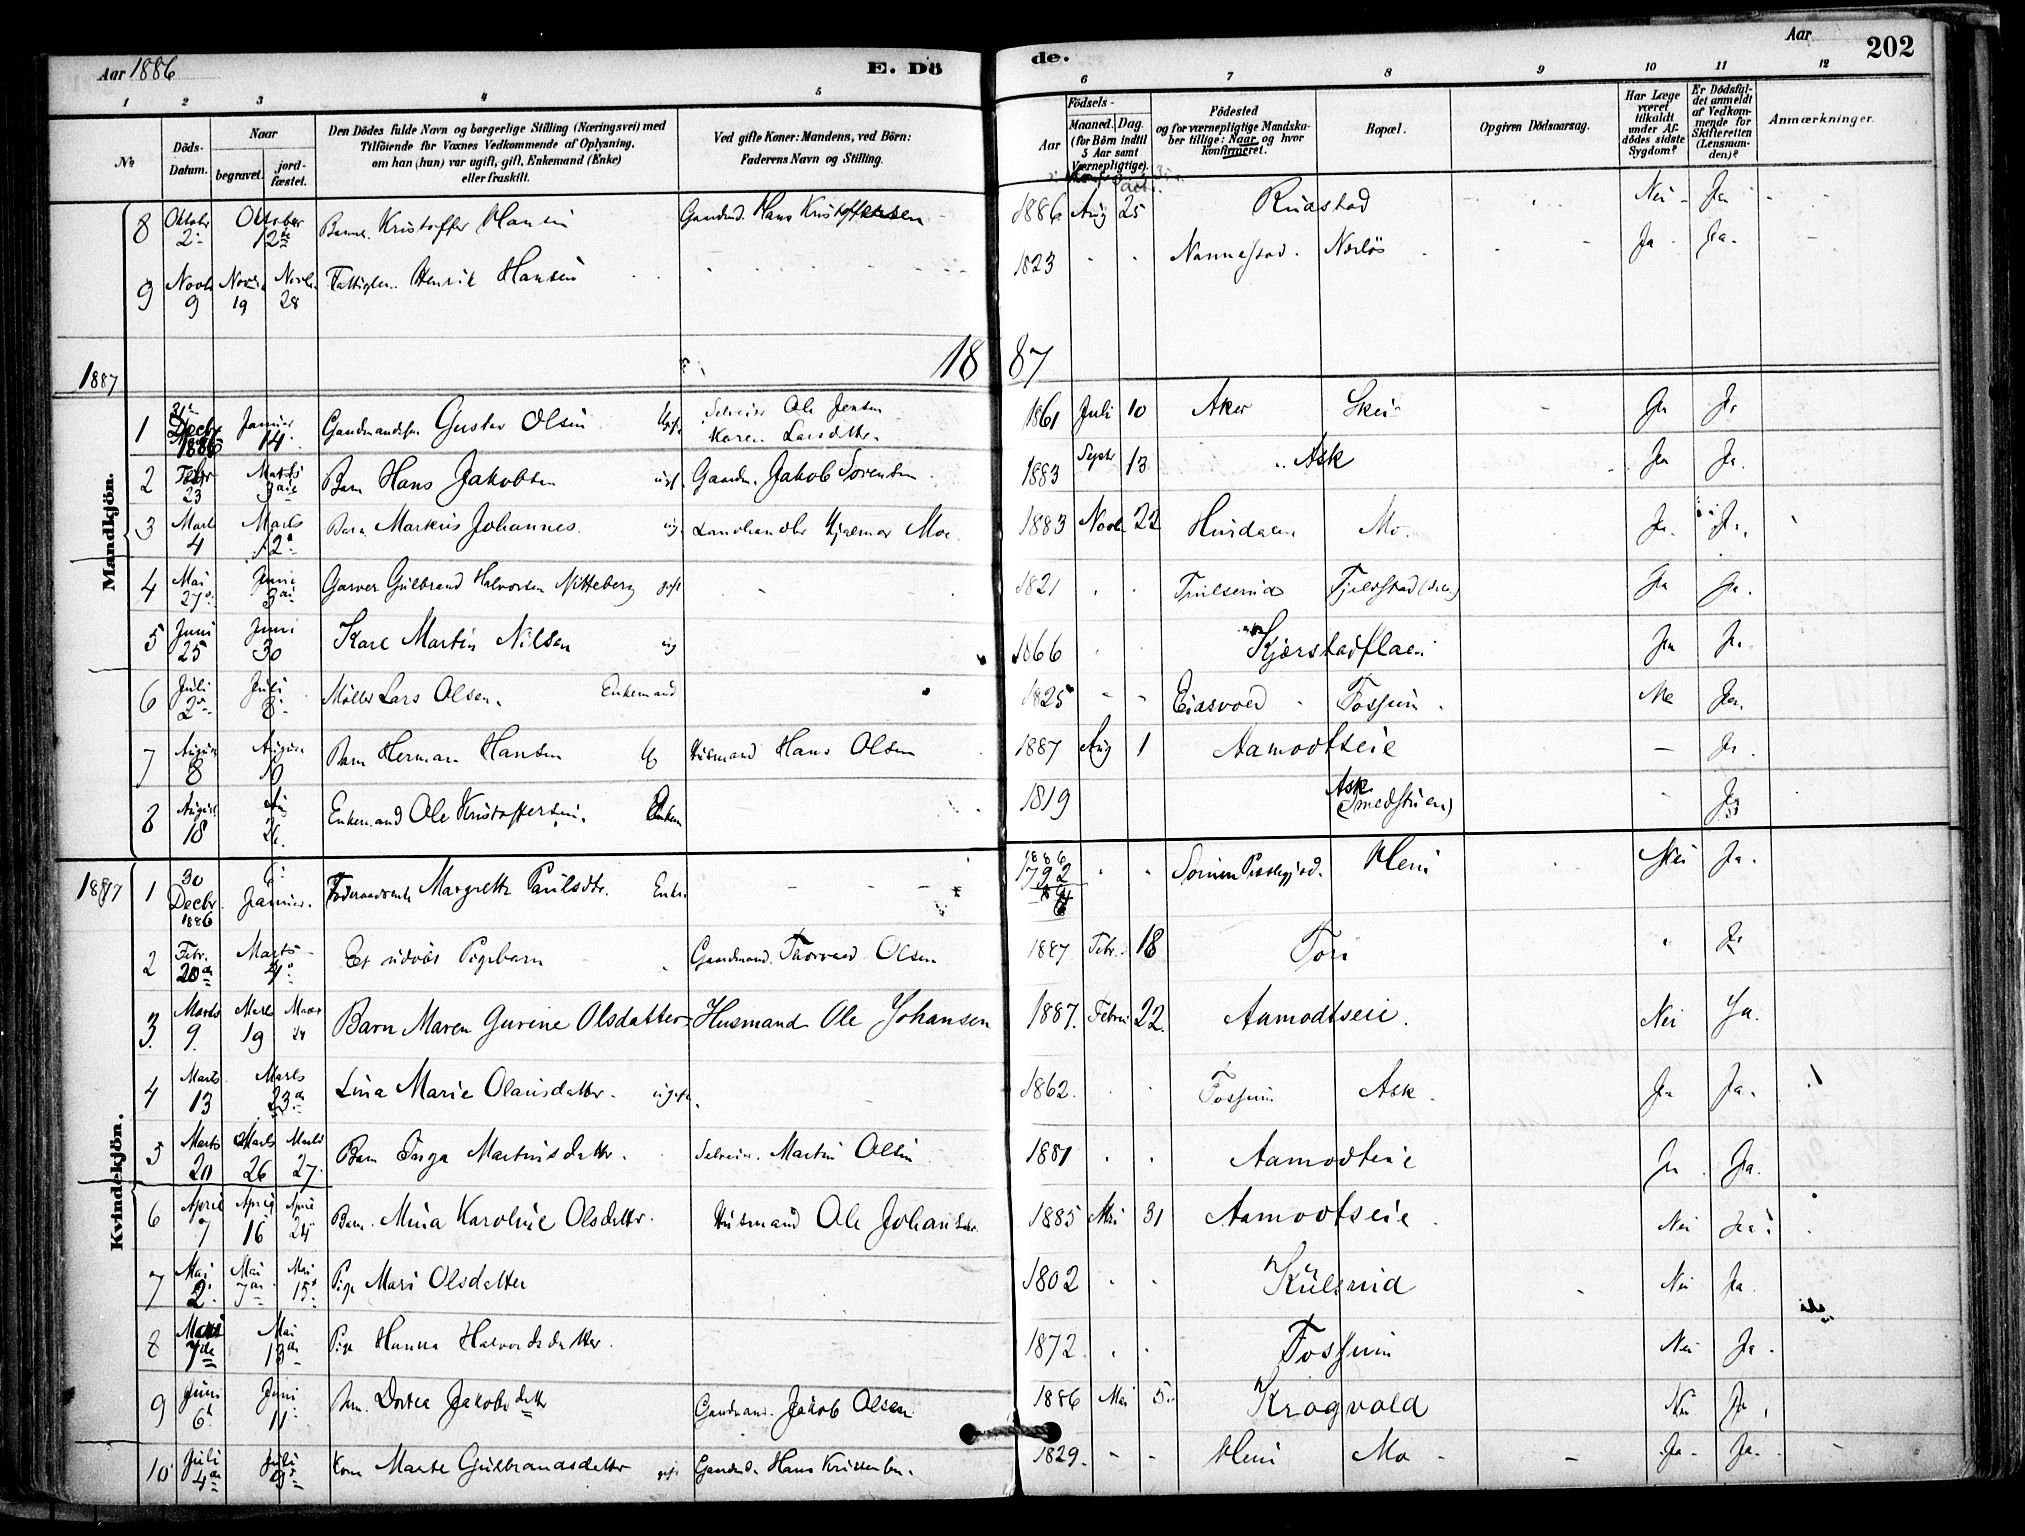 Aar 1886 E. Dö de. Aar 202
1 2 3 4 5 6 7 8 9 10 11 12
No Döds-Datum. Naar begravet. jord-fæstet. Den Dödes fulde Navn og borgerlige Stilling (Næringsvei) med Tilföiende for Voxnes Vedkommende af Oplysning, om han (hun) var ugift, gift, Enkemand (Enke) eller fraskilt. Ved gifte Koner: Mandens, ved Börn: Faderens Navn og Stilling. Födsels- Aar Maaned. Dag. (for Börn indtil 5 Aar samt Værnepligtige). Födested og for værnepligtige Mandskaber tillige: Naar og hvor konfirmeret. Bopæl. Opgiven Dödsaarsag. Har Læge været tilkaldt under Afdödes sidste Sygdom? Er Dödsfaldet anmeldt af Vedkommende for Skifteretten (Lensmanden)? Anmærkninger.
8 Oktobr 2 Oktober 12te Kristoffer Hansen Hans Kristoffersen 1886 Aug 25 Rudstad Nei Ja
9 Novbr 9 Novbr 19 Novbr 28 Henrik Hansen 1823 Nannestad Nerløs Ja Ja
1887 1887
Mandkjön.
1 31 Decbr 1886 Januar 14 Gustav Olsen Ugift Ole Jensen Karen Larsdtr. 1861 Juli 10 Aker Ja Ja
2 Febr 23 Marts Barn Hans Jakobsen ugf. Gaardm. Jakob Sorensen 1883 Septr 13 Ask Ja Ja
3 Marts 4 Marts 12 Barn Markus Johannes ug. Landhandler Hjalmar Moe 1883 Novbr 22 Hurdalen Mo Ja Ja
4 Mai 27 Juni 3die Garver Gulbrand Halvorsen Nitteberg gift 1821 Trulserud Fjeldstad Ja Ja
5 Juni 25 Juni 30 Karl Martin Nilsen ug 1866 Kjærstadflaen Ja Ja
6 Juli 2 Juli 8 Møller Lars Olsen Enkemand 1825 Eidsvold Fossum Ja
7 August 8 August 10 Barn Herman Hansen Ug Husmand Hans Olsen 1887 Aug 1 Aamodtseie Ja
8 August 18 Aug 26 Enkemand Ole Kristoffersen Enkem 1819 Ask (Smedstuen) Ja
Kvindekjön.
1887 1 30 Decbr 1886 Januar Margrethe Paulsdtr. Enke 1886 1792 Præstegjæld. Heni Nei Ja
2 Febr. 20de Marts Et udøbt Pigebarn Gaardmand Thorvald Olsen 1887 Febr. 18 Ja
3 Marts 9 Marts 19 Marts Barn Maren Gurine Olsdatter Husmand Ole Johansen 1887 Februar 22 Aamodtseie Nei Ja
4 Marts 13 Marts 23de Lina Marie Olausdatter ugift 1862 Fossum Ask Ja Ja
5 Marts 20 Marts 26 Marts 27 Barn Inga Martinsdatter Martin Olsen 1881 Aamodteie Ja Ja
6 April 7 April 16 April 24 Barn Mina Karoline Olsdatter Husmand Ole Johansen 1885 Mai 31 Aamodtseie Nei Ja
7 Mai 2 Mai 7de Mai 15 Pige Mari Olsdatter 1802 Kulsrud Nei Ja
8 7de Mai 13de Pige Hanna Halvordsdatter 1872 Fossum Nei Ja
9 Juni 6 Juni 11 Barn Dortea Jakobsdatter Gaardmand Jakob Olsen 1886 Mai 5 Krogvold Nei Ja
10 Juli 4de Juli Kone Marte Gulbrandsdatter gift Hans Kristensen 1829 Heni Mo Ja Ja